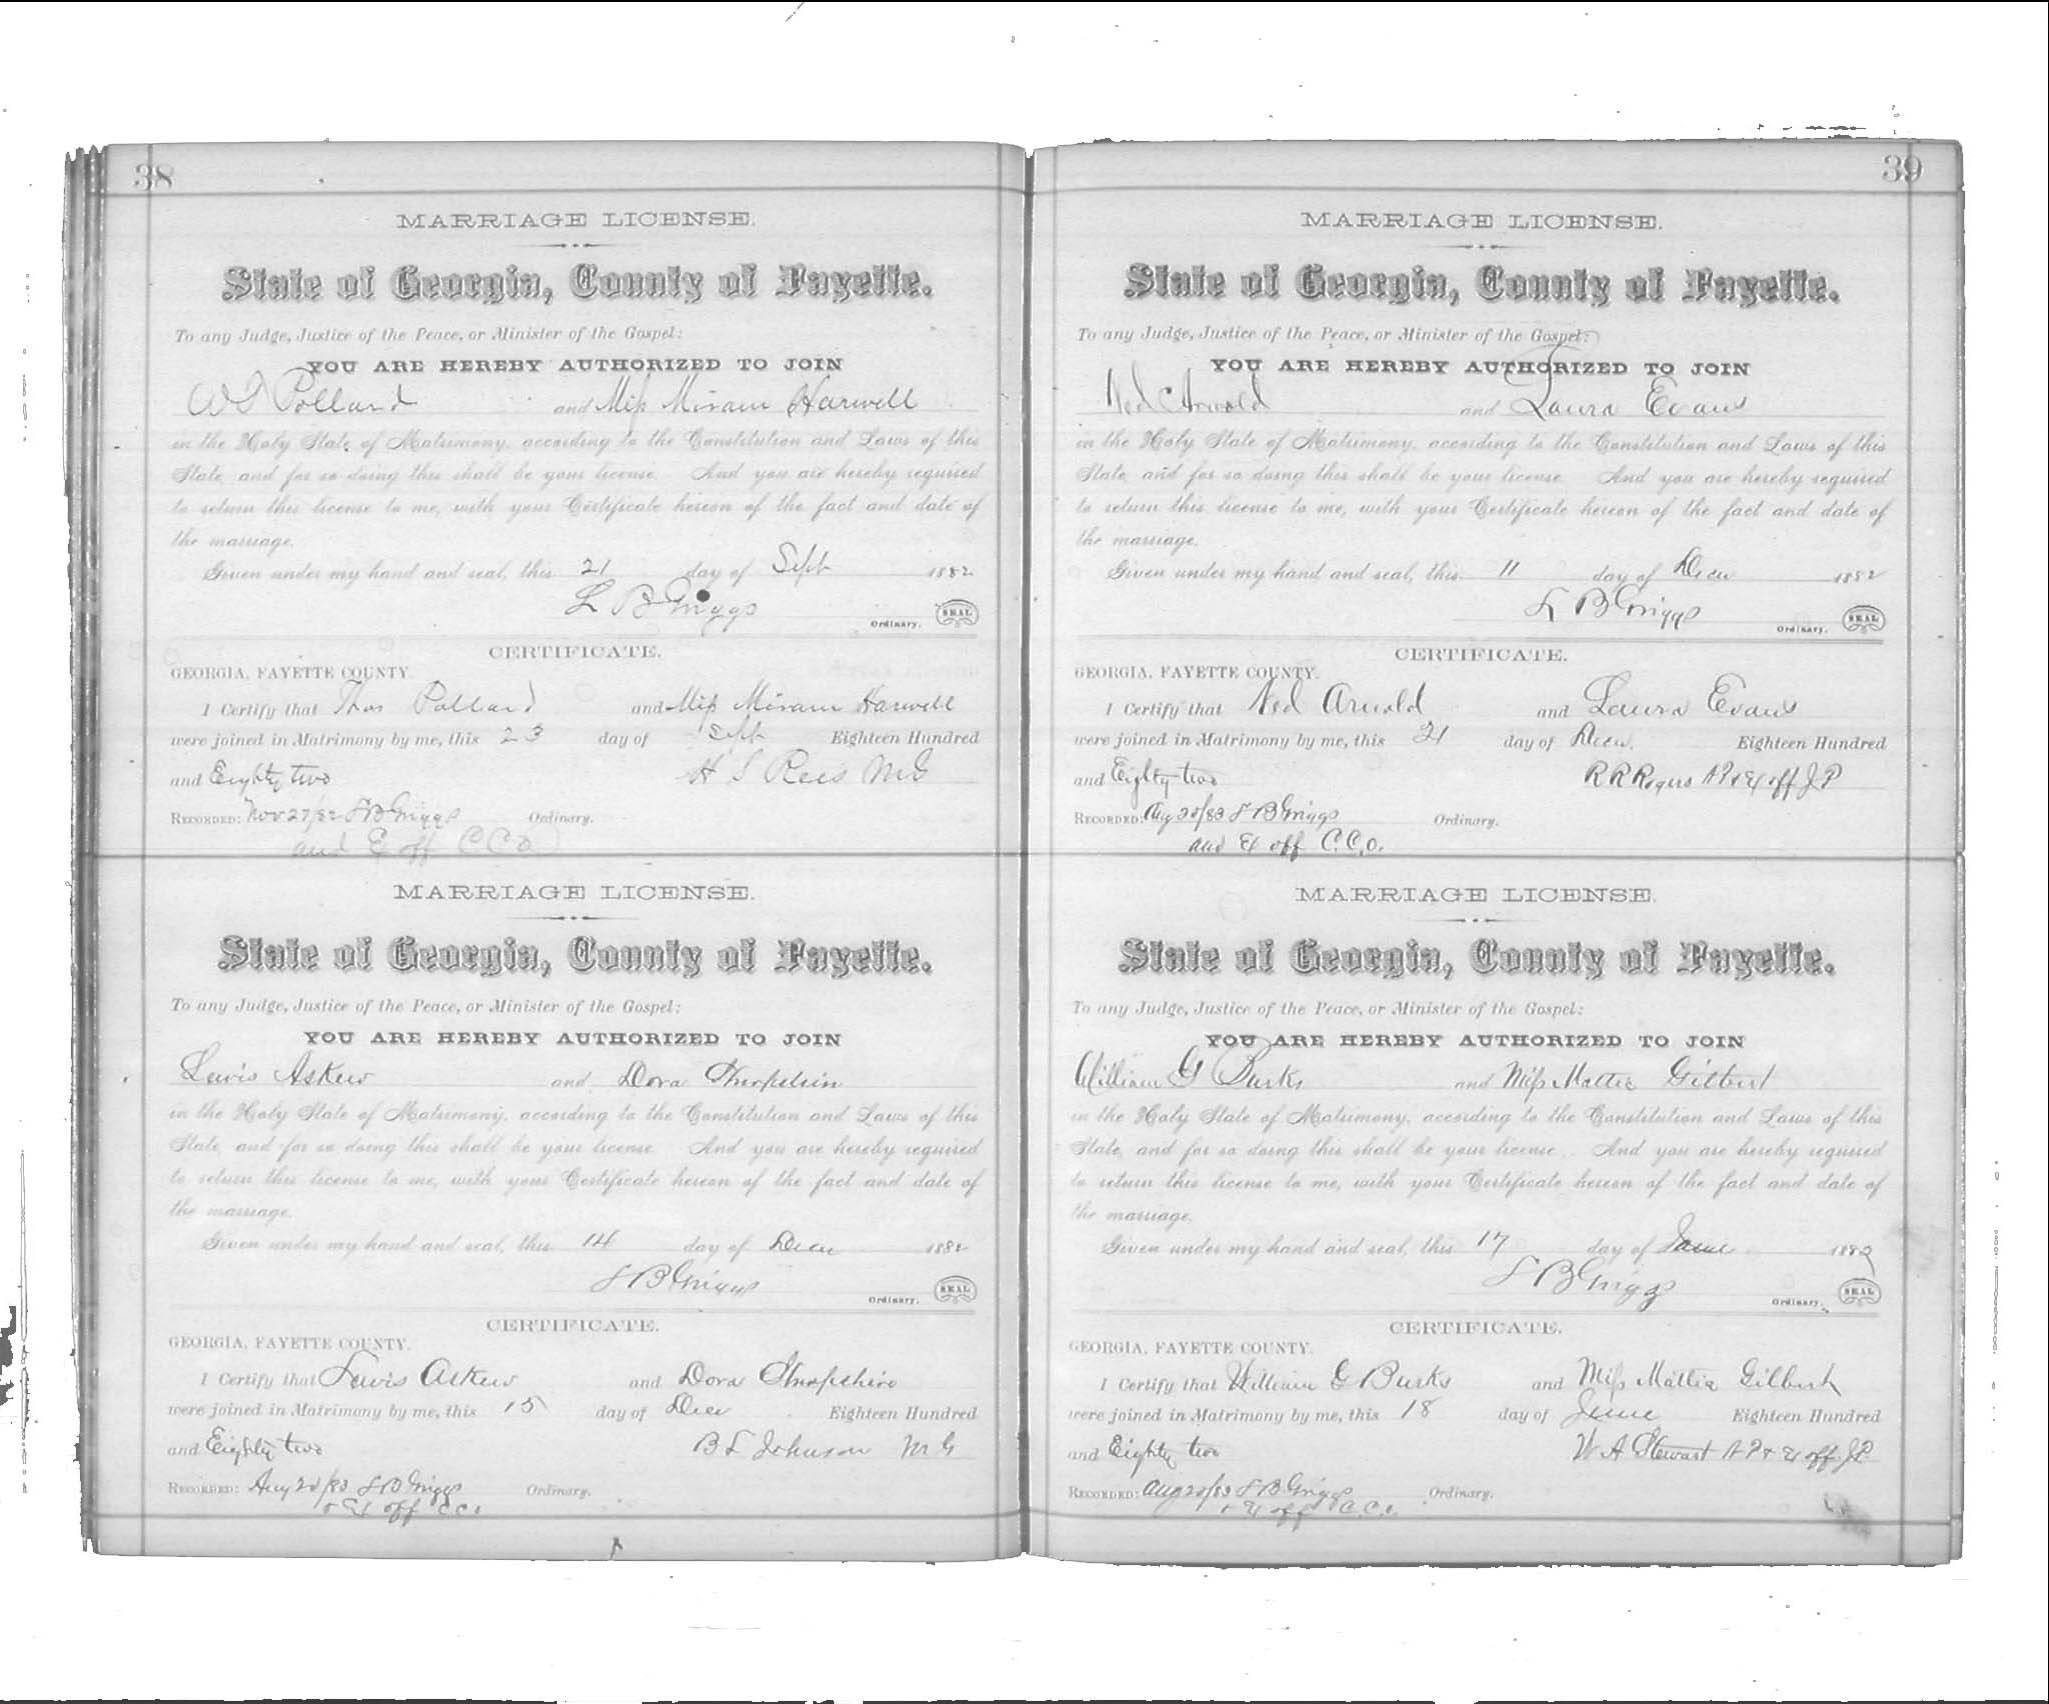 38
MARRIAGE LICENSE.
State of Georgia, County of Fayette.
To any Judge, Justice of the Peace, or Minister of the Gospel:
YOU ARE HEREBY AUTHORIZED TO JOIN
W T Pollard and Miss Miriam Harwell
in the Holy State of Matrimony, according to the Constitution and Laws of this
State, and for so doing this shall be your license. And you are hereby required
to return this license to me, with your Certificate hereon of the fact and date of
the marriage.
Given under my hand and seal, this 21 day of Sept 1882
L B Griggs
Ordinary. SEAL
CERTIFICATE.
GEORGIA, FAYETTE COUNTY.
I Certify that Thos Pollard and Miss Miriam Harwell
were joined in Matrimony by me, this 23 day of Sept Eighteen Hundred
and Eighty two H S Rees M G
RECORDED: Nov 27/82 L B Griggs Ordinary.
and Ex off C C O
MARRIAGE LICENSE.
State of Georgia, County of Fayette.
To any Judge, Justice of the Peace, or Minister of the Gospel:
YOU ARE HEREBY AUTHORIZED TO JOIN
Lewis Askew and Dora
in the Holy State of Matrimony, according to the Constitution and Laws of this
State, and for so doing this shall be your license. And you are hereby required
to return this license to me, with your Certificate hereon of the fact and date of
the marriage.
Given under my hand and seal, this 14 day of Decr 1882
L B Griggs
Ordinary. SEAL
CERTIFICATE.
GEORGIA, FAYETTE COUNTY.
I Certify that Lewis Askew and Dora Shropshire
were joined in Matrimony by me, this 15 day of Decr Eighteen Hundred
and Eighty two B L Johnson M G
RECORDED: Aug 20/83 L B Griggs Ordinary.
& Ex off C C O
39
MARRIAGE LICENSE.
State of Georgia, County of Fayette.
To any Judge, Justice of the Peace, or Minister of the Gospel:
YOU ARE HEREBY AUTHORIZED TO JOIN
Ned Arnold and Laura Evans
in the Holy State of Matrimony, according to the Constitution and Laws of this
State, and for so doing this shall be your license. And you are hereby required
to return this license to me, with your Certificate hereon of the fact and date of
the marriage.
Given under my hand and seal, this 11 day of Decr 1882
L B Griggs
Ordinary. SEAL
CERTIFICATE.
GEORGIA, FAYETTE COUNTY.
I Certify that Ned Arnold and Laura Evans
were joined in Matrimony by me, this 21 day of Decr. Eighteen Hundred
and Eighty two R R Rogers N P & Ex off J P
RECORDED: Aug 20/83 L B Griggs Ordinary.
and Ex off C.C.O.
MARRIAGE LICENSE.
State of Georgia, County of Fayette.
To any Judge, Justice of the Peace, or Minister of the Gospel:
YOU ARE HEREBY AUTHORIZED TO JOIN
William G Burks and Miss Mattie Gilbert
in the Holy State of Matrimony, according to the Constitution and Laws of this
State, and for so doing this shall be your license. And you are hereby required
to return this license to me, with your Certificate hereon of the fact and date of
the marriage.
Given under my hand and seal, this 17 day of June 1882
L B Griggs
Ordinary. SEAL
CERTIFICATE.
GEORGIA, FAYETTE COUNTY.
I Certify that William G Burks and Miss Mattie Gilbert
were joined in Matrimony by me, this 18 day of June Eighteen Hundred
and Eighty two W A Stewart N P & Ex off J P
RECORDED: Aug 20/83 L B Griggs Ordinary.
& Ex off C.C.O.